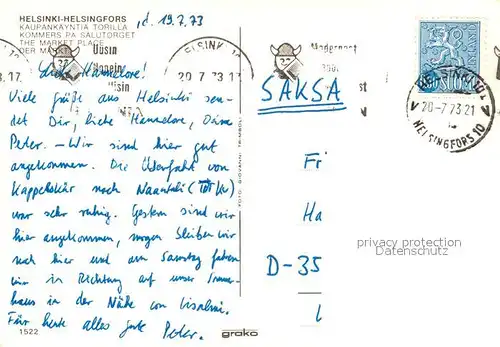 HELSINKI-HELSINGFORS
KAUPANKÄYNTIÄ TORILLA
KOMMERS PÅ SALUTORGET
THE MARKET PLACE
DER MA
d. 19.7.73
Liebe Hannelore!
Viele Grüße aus Helsinki sen-
det Dir, liebe Hannelore, Deine
Peter. – Wir sind hier gut
angekommen. Die Überfahrt von
Kappelskär nach Naantali
war sehr ruhig. Gestern sind wir
hier angekommen, morgen bleiben wir
noch hier und am Samstag fahren
wir in Richtung auf unser
haus in der Nähe von Iisalmi.
Für heute alles gute Peter.
1522
FOTO: GIOVANNI TRIMBOLI
grako
ELSINKI 10
20-7 73.17
HELSINKI 10
20-7 73.21
HELSINGFORS 10
SUOMI
SAKSA
Fr
Ha
D-35
privacy protection
Datenschutz